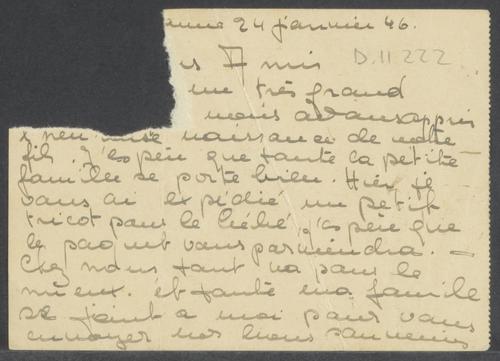 24 janvier 46.
D.11222
Amis
un très grand
nous avons appris
naissance de votre
fils. J'espère que toute la petite
famille se porte bien. Hier je
vous ai expédié un petit
tricot pour le bébé, j'espère que
le paquet vous parviendra. —
Chez nous tout va pour le
mieux. et toute ma famille
se joint a moi pour vous
envoyer nos bons souvenirs